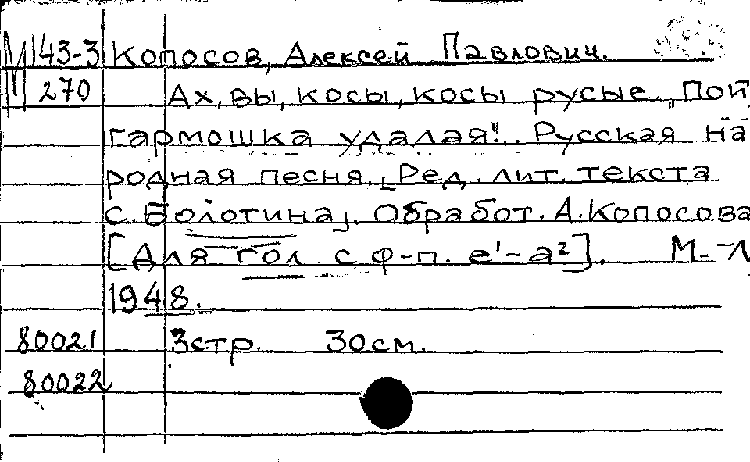 М 143-3 Копосов, Алексей Павлович.
270 Ах, вы, косы, косы русые, Пой
гармошка удалая! Русская на
родная песня, [Ред. лит. текста
С. Болотина]. Обработ. А. Копосова
[Для гол с ф-п. e¹-a²]. М.-Л
1948.
80021 3стр. 30см.
80022